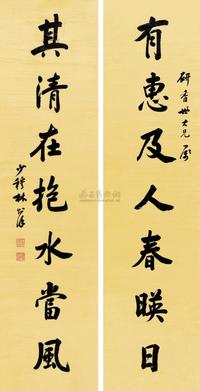 研香世大兄屬
有惠及人春暎日
其清在抱水當風
少穆林則徐